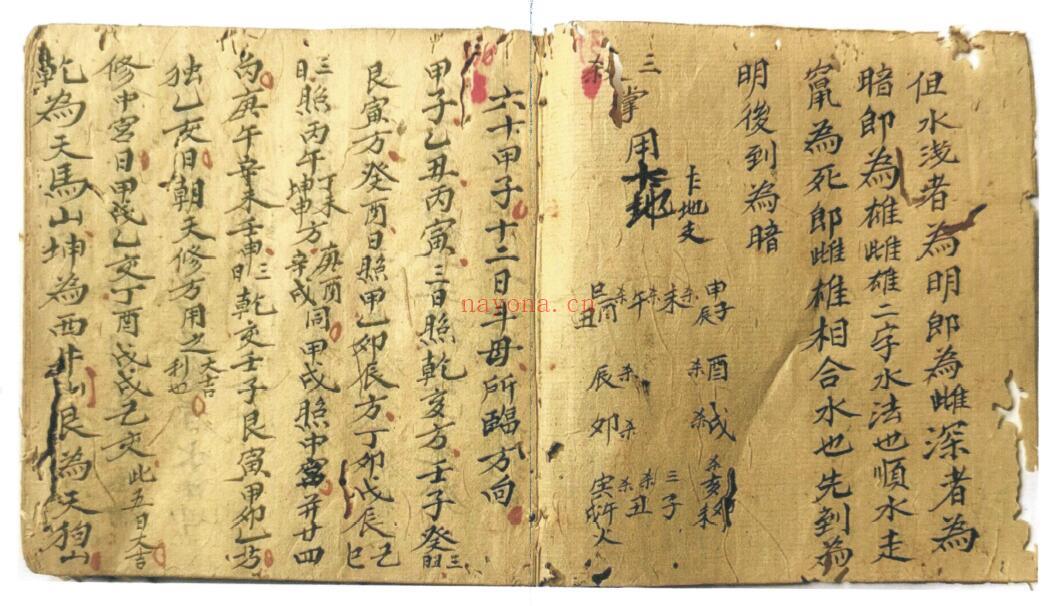 但水浅者為明郎為雌深者為
暗郎為雄雌雄二字水法也順水走
窜為死郎雌雄相合水也先到為
明後到為暗
三掌用
卡地支
申子辰 未 午 巳酉丑
酉 辰
戌 卯
亥卯未 三子 丑 寅午戌火
六十甲子十二日斗母所臨方向
甲子乙丑丙寅三日照乾亥方壬子癸
艮寅方癸酉日照甲乙卯辰方丁卯戊辰己巳
三日照丙午丁未坤申方庚酉辛戌同甲戌照中宮并廿四
向庚午辛未壬申三日乾亥壬子艮寅甲卯乙巧
独乙亥日朝天修方用之大吉利也
修中宮日甲戌乙亥丁酉戊戌己亥此五日大吉
乾為天馬山坤為西牛山艮為天狗山
nayona.cn